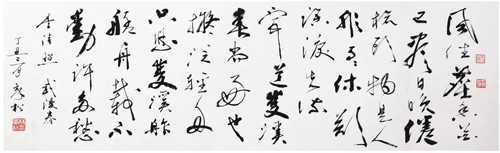 風住塵香花
已盡日晚倦
梳頭物是人
非事事休欲
語淚先流
聞雙溪
春尚好也
擬泛輕舟
只恐雙溪舴
艋舟載不
動許多愁
李清照 武陵春